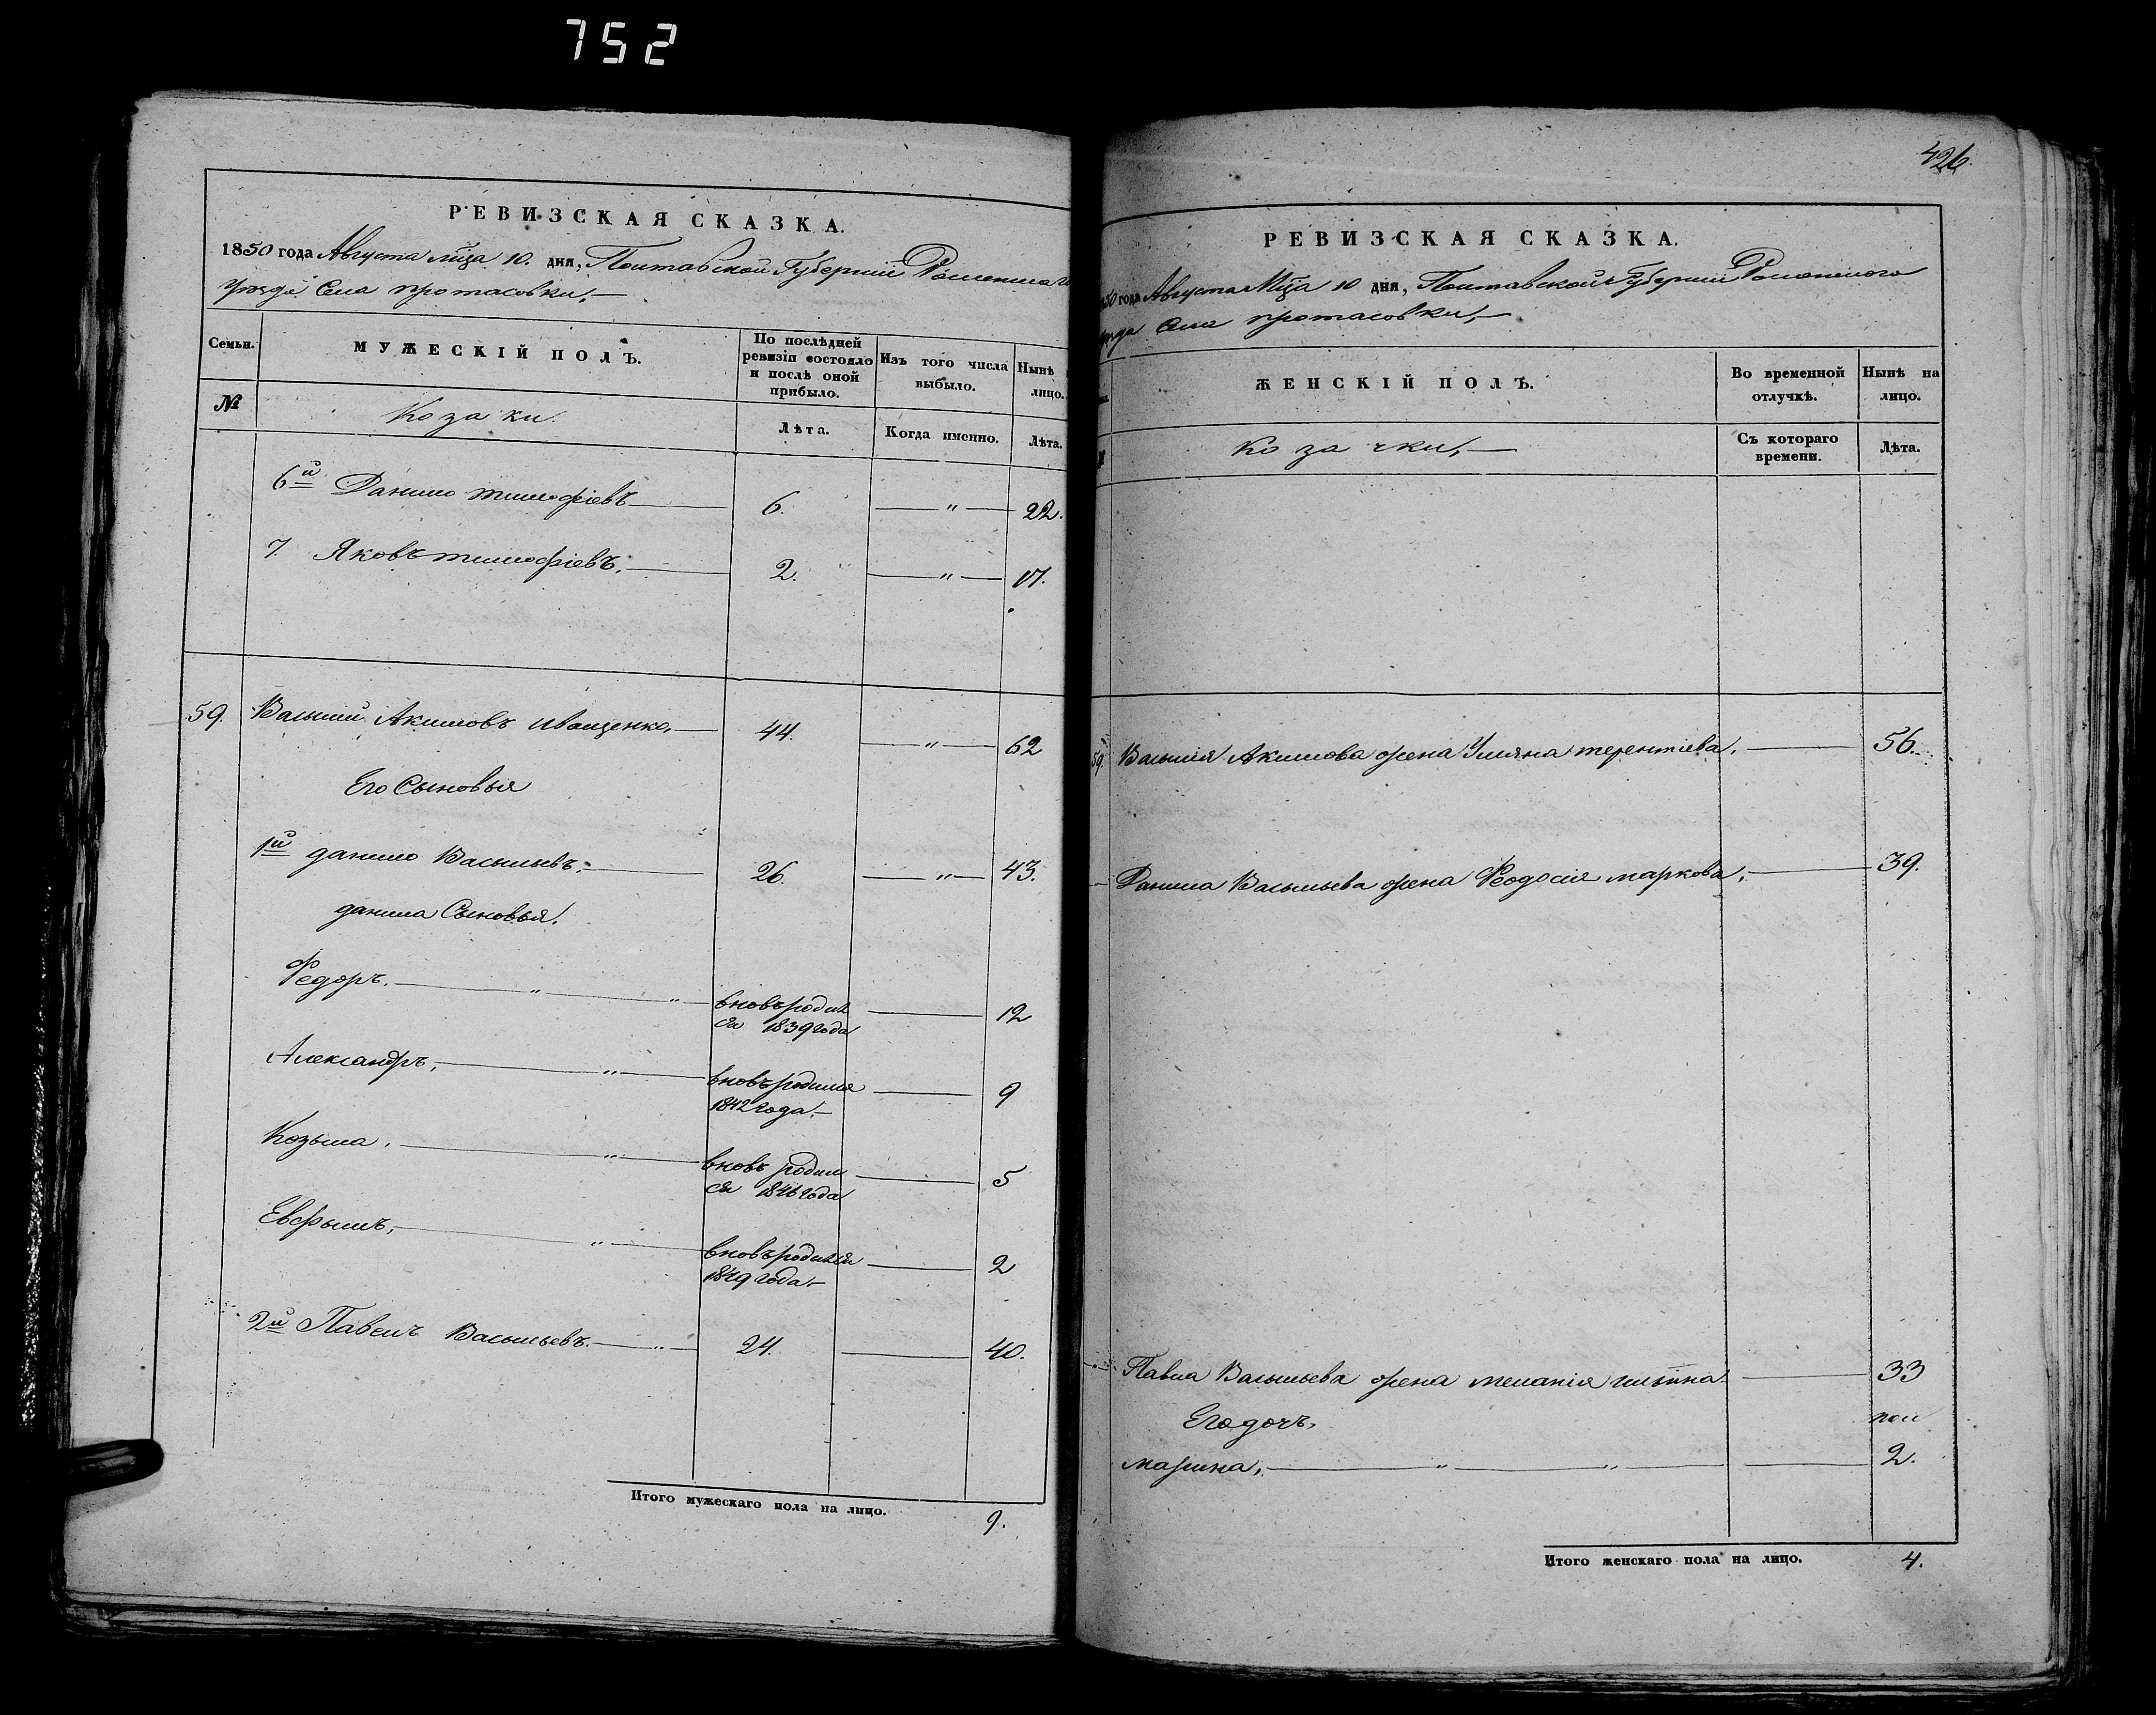 752
РЕВИЗСКАЯ СКАЗКА.
1850 года Августа мца 10. дня, Полтавской Губернии Роменскаго
уезда Села протасовки,
Семьи.
МУЖЕСКІЙ ПОЛЪ.
По послѣдней ревизіи состояло и послѣ оной прибыло.
Изъ того числа выбыло.
Нынѣ лицо.
№
Козаки.
Лѣта.
Когда именно.
Лѣта.
6й Данило тимофіевъ 6. " 22.
7. Яковъ тимофіевъ. 2. " 17.
59. Василий Акимовъ иващенко. 44. " 62
Его Сыновья
1й данило Васильевъ. 26. " 43.
данила Сыновья.
Федоръ. " " вновь родил
ся 1839 года 12
Александръ, " вновь родился
1842 года. 9
Козьма. " вновь родил
ся 1846 года 5
Евфымъ, " вновь родился
1849 года. 2
2й Павелъ Васильевъ. " 24. 40.
Итого мужескаго пола на лицо. 9.
426.
РЕВИЗСКАЯ СКАЗКА.
50 года Августа Мца 10 дня, Полтавской Губернии Роменского
уезда Села протасовки,
ЖЕНСКІЙ ПОЛЪ.
Во временной отлучкѣ.
Нынѣ на лицо.
№
Козачки,
Съ котораго времени.
Лѣта.
59. Василия Акимова жена Уляна терентиева. 56.
Данила Васильева жена Феодосия маркова, 39.
" Павла Васильева жена мелания ильина 33
Его дочь, пол
марина, " " 2.
Итого женскаго пола на лицо. 4.